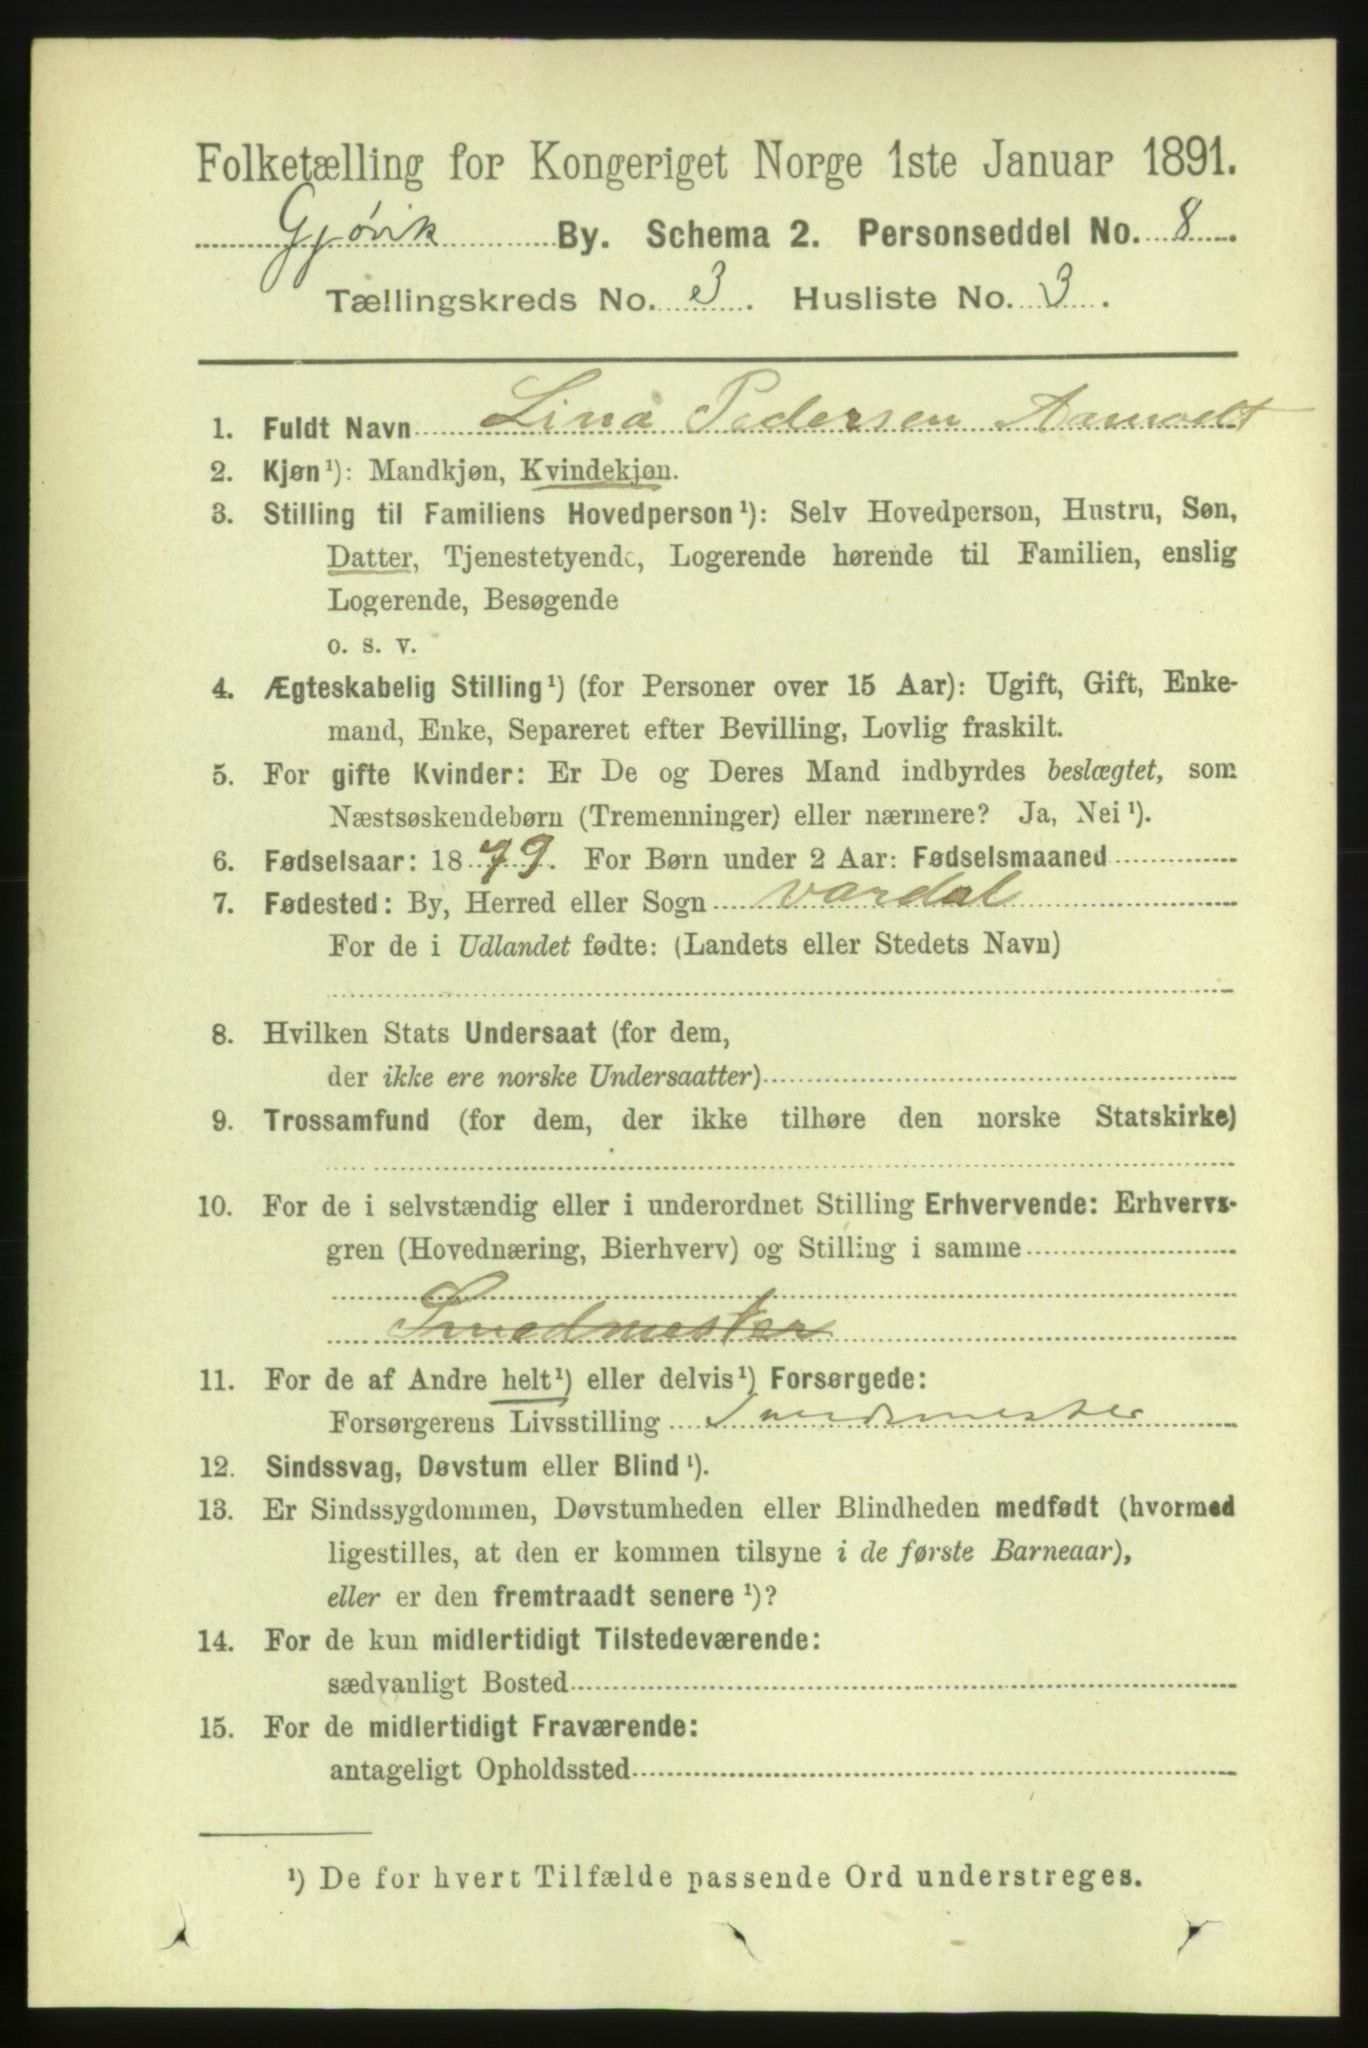 Folketælling for Kongeriget Norge 1ste Januar 1891.
Gjøvik By. Schema 2. Personseddel No. 8.
Tællingskreds No. 3. Husliste No. 3.
1. Fuldt Navn Lina Pedersen Aamodt
2. Kjøn¹): Mandkjøn, Kvindekjøn.
3. Stilling til Familiens Hovedperson¹): Selv Hovedperson, Hustru, Søn,
Datter, Tjenestetyende, Logerende hørende til Familien, enslig
Logerende, Besøgende
o. s. v.
4. Ægteskabelig Stilling¹) (for Personer over 15 Aar): Ugift, Gift, Enke-
mand, Enke, Separeret efter Bevilling, Lovlig fraskilt.
5. For gifte Kvinder: Er De og Deres Mand indbyrdes beslægtet, som
Næstsøskendebørn (Tremenninger) eller nærmere? Ja, Nei¹).
6. Fødselsaar: 1879. For Børn under 2 Aar: Fødselsmaaned
7. Fødested: By, Herred eller Sogn vardal
For de i Udlandet fødte: (Landets eller Stedets Navn)
8. Hvilken Stats Undersaat (for dem,
der ikke ere norske Undersaatter)
9. Trossamfund (for dem, der ikke tilhøre den norske Statskirke)
10. For de i selvstændig eller i underordnet Stilling Erhvervende: Erhvervs-
gren (Hovednæring, Bierhverv) og Stilling i samme
Smedmester
11. For de af Andre helt¹) eller delvis¹) Forsørgede:
Forsørgerens Livsstilling Smedmester
12. Sindssvag, Døvstum eller Blind¹).
13. Er Sindssygdommen, Døvstumheden eller Blindheden medfødt (hvormed
ligestilles, at den er kommen tilsyne i de første Barneaar),
eller er den fremtraadt senere¹)?
14. For de kun midlertidigt Tilstedeværende:
sædvanligt Bosted
15. For de midlertidigt Fraværende:
antageligt Opholdssted
¹) De for hvert Tilfælde passende Ord understreges.